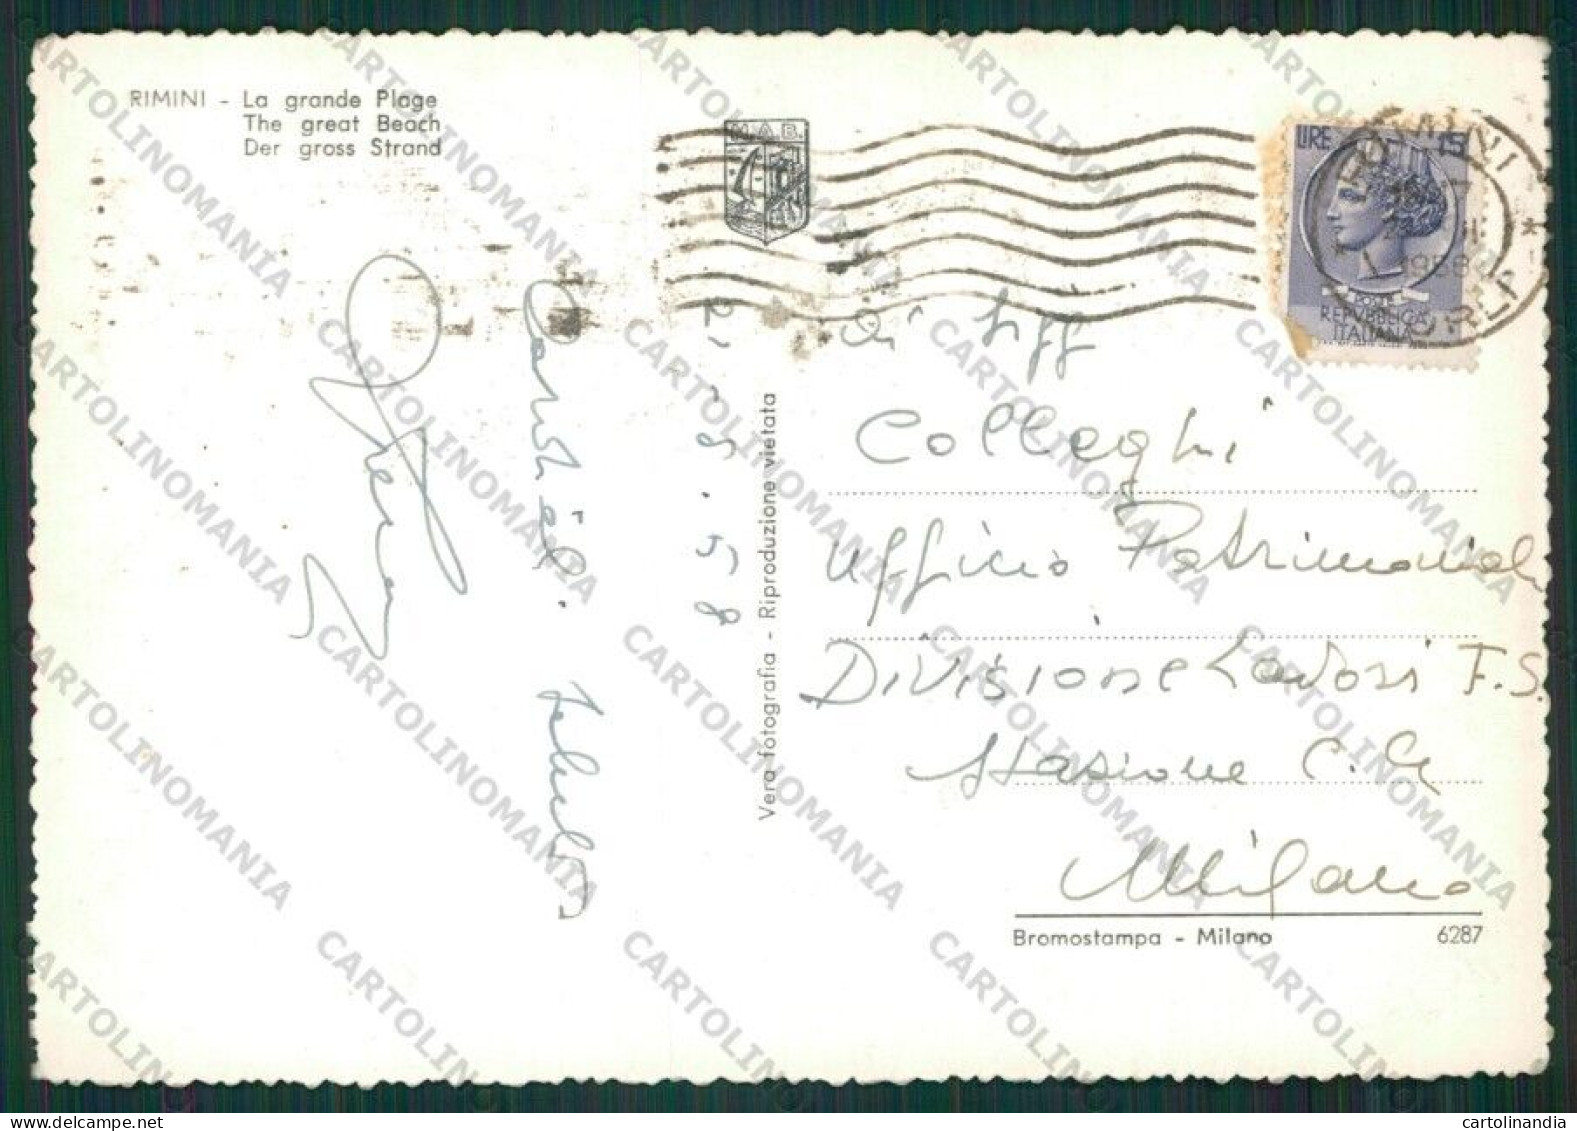 RIMINI - La grande Plage
The great Beach
Der gross Strand
M.A.B.
LIRE 15
1958
POSTE
REPVBBLICA
ITALIANA
Cordiali saluti
2.8.58
Vera fotografia - Riproduzione vietata
Colleghi
Ufficio Patrimoniale
Divisione Lavori F.S.
Stazione C.le
Milano
Bromostampa - Milano 6287
CARTOLINOMANIA
cartolinandia